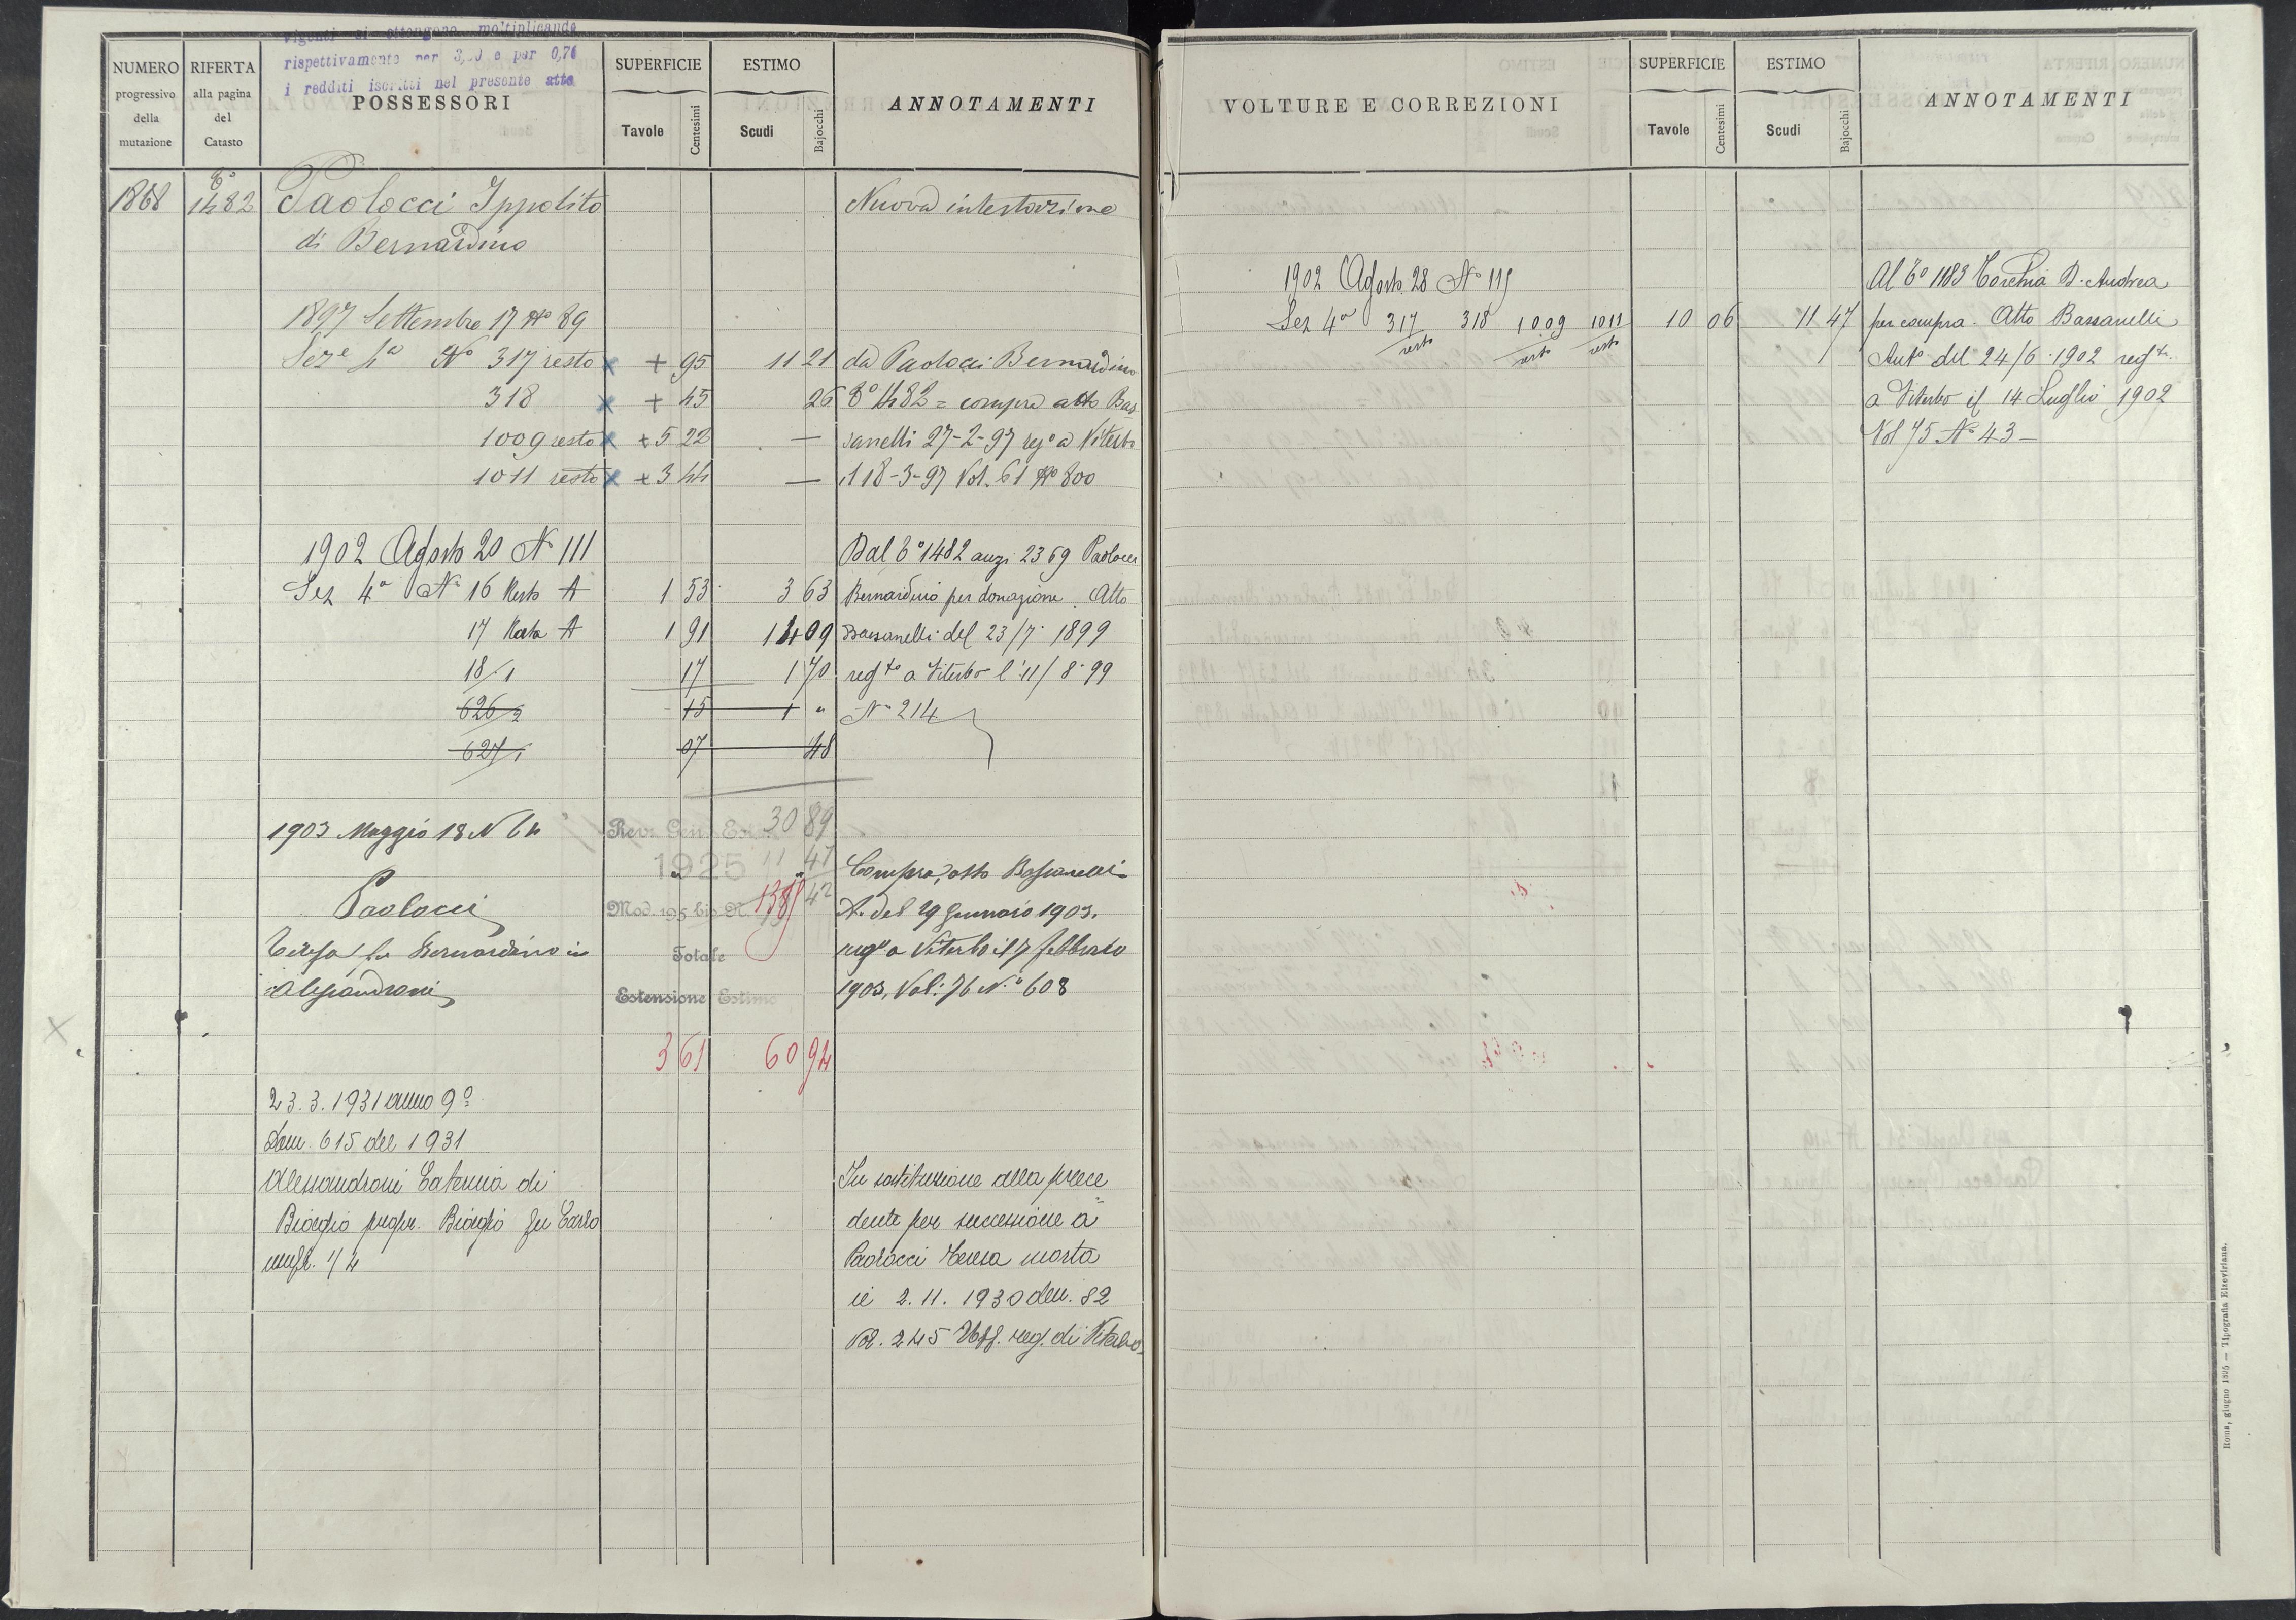 vigenti si ottengono moltiplicando
rispettivamente per e per 0,76
i redditi iscritti nel presente atto
NUMERO progressivo della mutazione
RIFERTA alla pagina del Catasto
POSSESSORI
SUPERFICIE Tavole Centesimi
ESTIMO Scudi Bajocchi
ANNOTAMENTI
1868 To 1482 Paolocci Ippolito Nuova intestazione
di Bernardino
1897 Settembre 17 No 89
Seze 4a No 317 resto x + 95 11 21 da Paolocci Bernardino
318 x + 45 26 To 1482 = compra atto Bas
1009 resto x + 5 22 — sanelli 27-2-97 rego a Viterbo
1011 resto x + 3 44 — il 18-3-97 Vol. 61 No 800
1902 Agosto 20 No 111 Dal To 1482 anzi 2369 Paolocci
Sez 4a No 16 Resto A 1 53 3 63 Bernardino per donazione. Atto
17 Rata A 1 91 14 09 Bassanelli del 23/7 1899
18/1 17 1 70 regto a Viterbo l'11/8-99
626/2 15 1 " No 214
627/1 07 48
30 89
1903 Maggio 18 N 64 Rev. Gen. Est.
1925 11 47 Compra, atto Bassanelli
Paolocci Mod. 195 bis N. 1389 42 A. del 29 Gennaio 1903.
Teresa fu Bernardino in Totale rego a Viterbo il 7 febbraio
Alessandroni Estensione Estimo 1903, Vol: 76 N.o 608
3 61 60 94
23.3.1931 anno 9o
Dom. 615 del 1931
Alessandroni Caterina di In sostituzione alla prece
Biagio propr. Biagio fu Carlo dente per successione a
usufr. 1/4 Paolocci Teresa morta
il 2.11.1930 den. 82
Vol. 245 Uff. reg. di Viterbo
VOLTURE E CORREZIONI
SUPERFICIE Tavole Centesimi
ESTIMO Scudi Bajocchi
ANNOTAMENTI
1902 Agosto 28 No 119 Al To 1183 Torchia D. Andrea
Sez 4a 317 318 1009 1011 10 06 11 47 per compra. Atto Bassanelli
resto resto resto Anto del 24/6 1902 regto
a Viterbo il 14 Luglio 1902
Vol 75 No 43 —
Roma, giugno 1895 — Tipografia Elzeviriana.